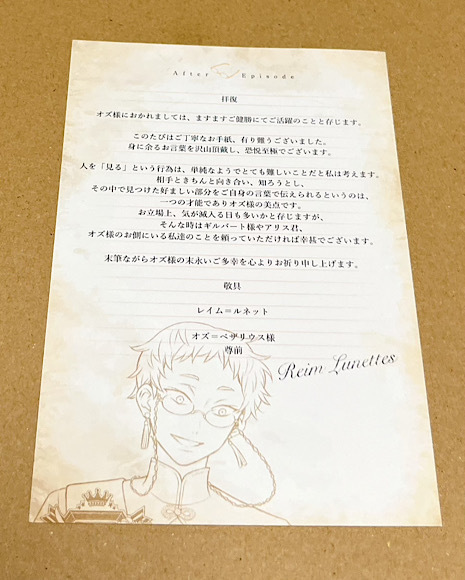 After Episode
拝復
オズ様におかれましては、ますますご健勝にてご活躍のことと存じます。
このたびはご丁寧なお手紙、有り難うございました。
身に余るお言葉を沢山頂戴し、恐悦至極でございます。
人を「見る」という行為は、単純なようでとても難しいことだと私は考えます。
相手ときちんと向き合い、知ろうとし、
その中で見つけた好ましい部分をご自身の言葉で伝えられるというのは、
一つの才能でありオズ様の美点です。
お立場上、気が滅入る日も多いかと存じますが、
そんな時はギルバート様やアリス君、
オズ様のお側にいる私達のことを頼っていただければ幸甚でございます。
末筆ながらオズ様の末永いご多幸を心よりお祈り申し上げます。
敬具
レイム＝ルネット
オズ＝ベザリウス様
尊前
Reim Lunettes